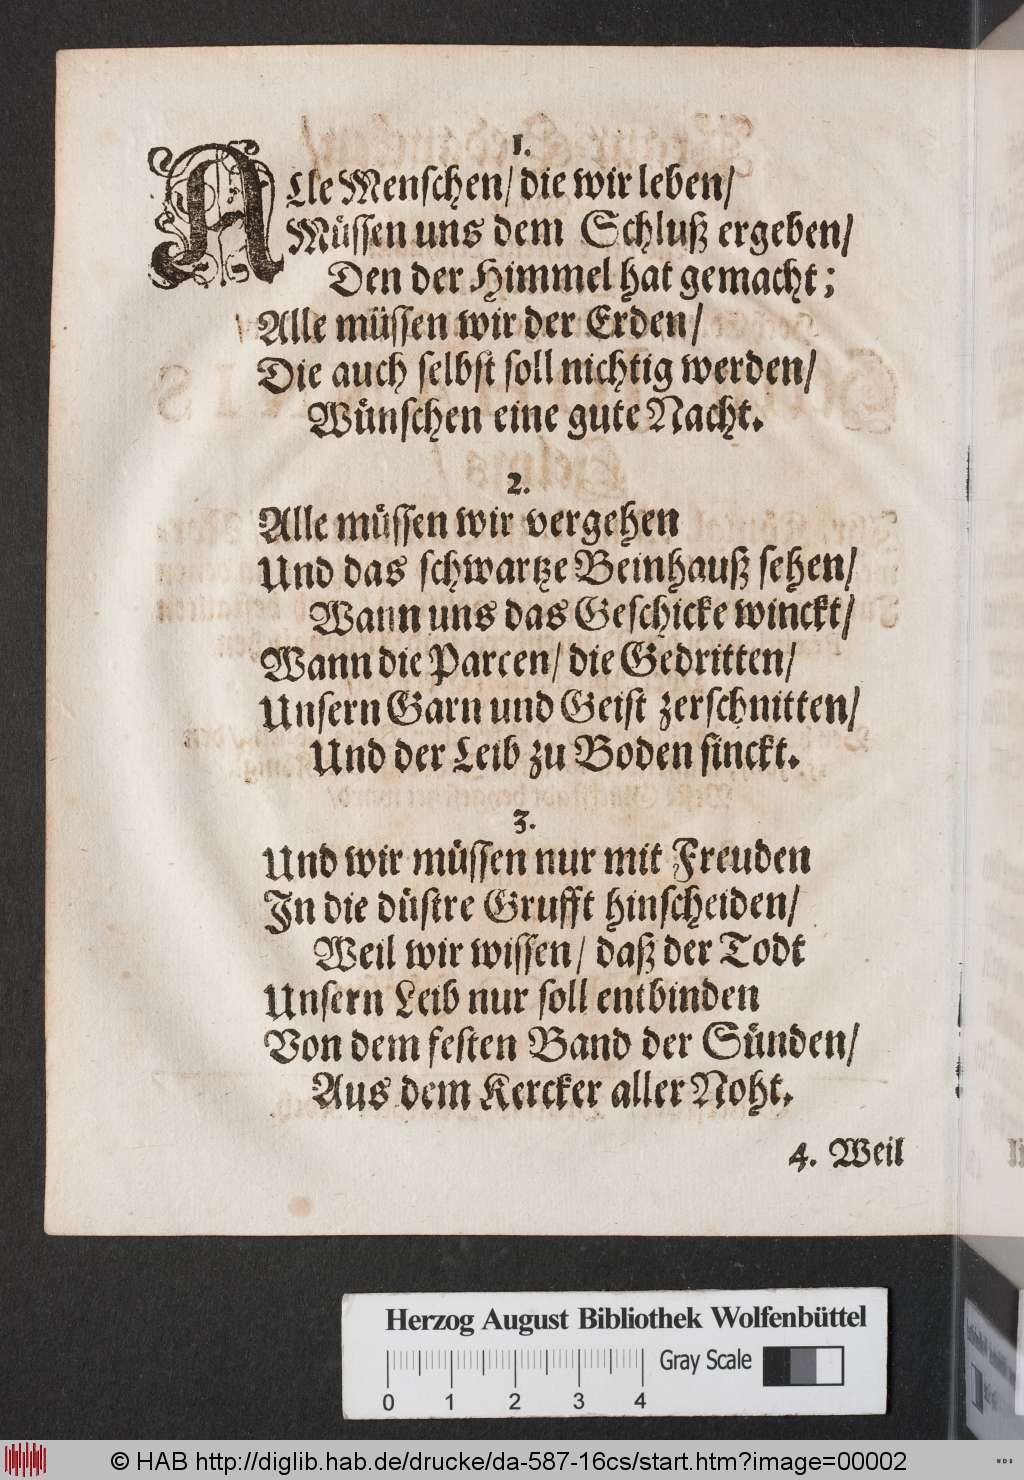 1.
ALle Menschen/ die wir leben/
Müssen uns dem Schluß ergeben/
Den der Himmel hat gemacht;
Alle müssen wir der Erden/
Die auch selbst soll nichtig werden/
Wünschen eine gute Nacht.
2.
Alle müssen wir vergehen
Und das schwartze Beinhauß sehen/
Wann uns das Geschicke winckt/
Wann die Parcen/ die Gedritten/
Unsern Garn und Geist zerschnitten/
Und der Leib zu Boden sinckt.
3.
Und wir müssen nur mit Freuden
In die düstre Grufft hinscheiden/
Weil wir wissen/ daß der Todt
Unsern Leib nur soll entbinden
Von dem festen Band der Sünden/
Aus dem Kercker aller Noht.
4. Weil
Herzog August Bibliothek Wolfenbüttel
Gray Scale
0 1 2 3 4
© HAB http://diglib.hab.de/drucke/da-587-16cs/start.htm?image=00002